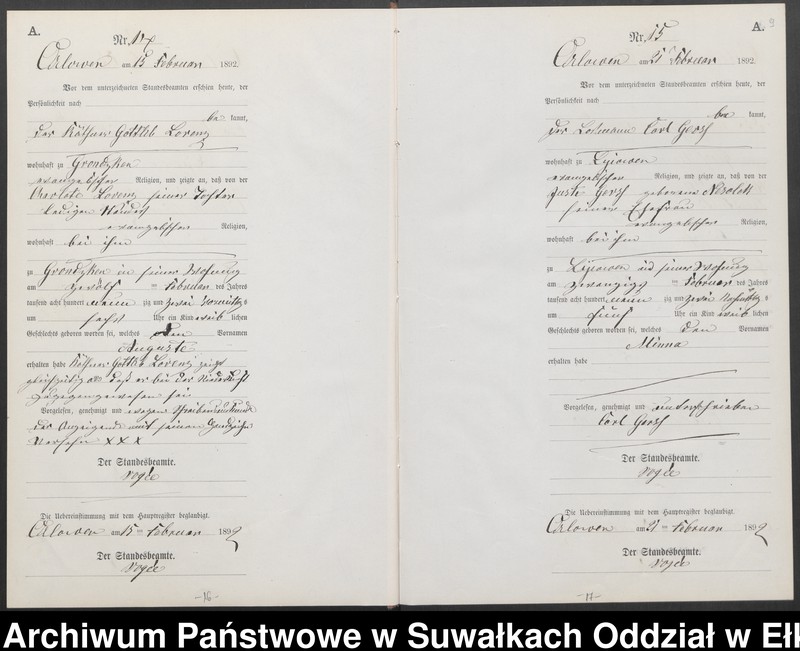 A.
Nr. 14
Orlowen am 15 Februar 1892.
Vor dem unterzeichneten Standesbeamten erschien heute, der
Persönlichkeit nach
be kannt,
der Käthner Gottlieb Lorenz
wohnhaft zu Grondzken
evangelischer Religion, und zeigte an, daß von der
Charlote Lorenz seiner Tochter
ledigen Standes
evangelischer Religion,
wohnhaft bei ihm
zu Grondzken in seiner Wohnung
am zwölf ten Februar des Jahres
tausend acht hundert neun zig und zwei Vormittag s
um sechs Uhr ein Kind weib lichen
Geschlechts geboren worden sei, welches den Vornamen
Auguste
erhalten habe Käthner Gottlieb Lorenz zeigt
gleichzeitig an daß er bei der Niederkunft
zugegengewesen sei
Vorgelesen, genehmigt und wegen Schreibensunkunde
des Anzeigenden mit seinem Handzeichen
versehen XXX
Der Standesbeamte.
Vogée
Die Uebereinstimmung mit dem Hauptregister beglaubigt.
Orlowen am 15 ten Februar 1892
Der Standesbeamte.
Vogée
-16-
A. 9
Nr. 15
Orlowen am 21 Februar 1892.
Vor dem unterzeichneten Standesbeamten erschien heute, der
Persönlichkeit nach
be kannt,
der Losmann Carl Gers
wohnhaft zu
evangelischer Religion, und zeigte an, daß von der
Juste Gers geborene
seiner Ehefrau
evangelischer Religion,
wohnhaft bei ihm
zu in seiner Wohnung
am zwanzigs ten Februar des Jahres
tausend acht hundert neun zig und zwei Nachmittag s
um fünf Uhr ein Kind weib lichen
Geschlechts geboren worden sei, welches den Vornamen
Minna
erhalten habe
Vorgelesen, genehmigt und unterschrieben
Carl Gers
Der Standesbeamte.
Vogée
Die Uebereinstimmung mit dem Hauptregister beglaubigt.
Orlowen am 21 ten Februar 1892
Der Standesbeamte.
Vogée
-17-
Archiwum Państwowe w Suwałkach Oddział w Ełk